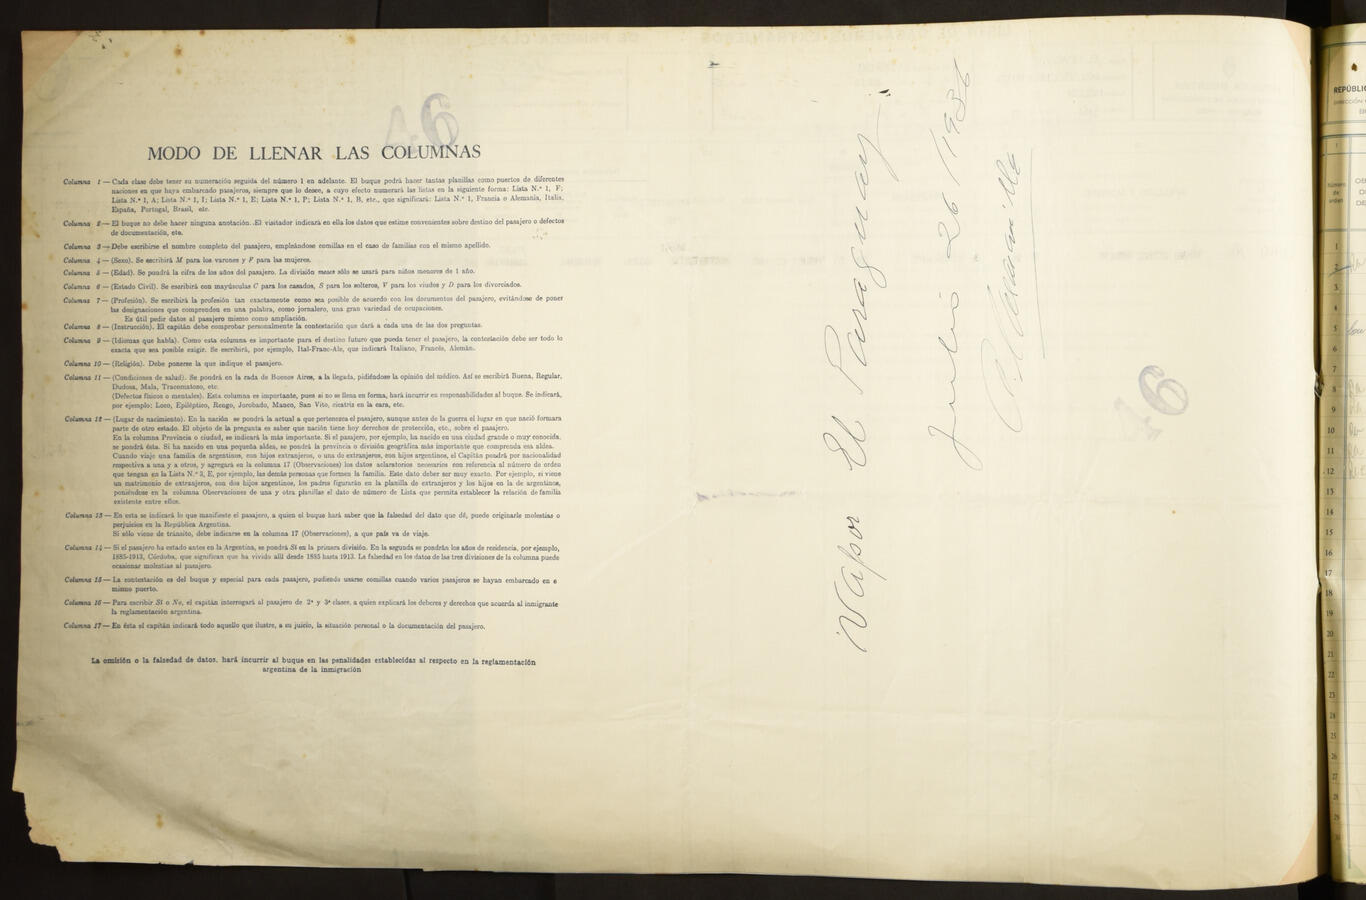 46
MODO DE LLENAR LAS COLUMNAS
Columna 1 — Cada clase debe tener su numeración seguida del número 1 en adelante. El buque podrá hacer tantas planillas como puertos de diferentes
naciones en que haya embarcado pasajeros, siempre que lo desee, a cuyo efecto numerará las listas en la siguiente forma: Lista N.º 1, F;
Lista N.º 1, A; Lista N.º 1, I; Lista N.º 1, E; Lista N.º 1, P; Lista N.º 1, B, etc., que significará: Lista N.º 1, Francia o Alemania, Italia,
España, Portugal, Brasil, etc.
Columna 2 — El buque no debe hacer ninguna anotación. El visitador indicará en ella los datos que estime convenientes sobre destino del pasajero o defectos
de documentación, etc.
Columna 3 — Debe escribirse el nombre completo del pasajero, empleándose comillas en el caso de familias con el mismo apellido.
Columna 4 — (Sexo). Se escribirá M para los varones y F para las mujeres.
Columna 5 — (Edad). Se pondrá la cifra de los años del pasajero. La división meses sólo se usará para niños menores de 1 año.
Columna 6 — (Estado Civil). Se escribirá con mayúsculas C para los casados, S para los solteros, V para los viudos y D para los divorciados.
Columna 7 — (Profesión). Se escribirá la profesión tan exactamente como sea posible de acuerdo con los documentos del pasajero, evitándose de poner
las designaciones que comprenden en una palabra, como jornalero, una gran variedad de ocupaciones.
Es útil pedir datos al pasajero mismo como ampliación.
Columna 8 — (Instrucción). El capitán debe comprobar personalmente la contestación que dará a cada una de las dos preguntas.
Columna 9 — (Idiomas que habla). Como esta columna es importante para el destino futuro que pueda tener el pasajero, la contestación debe ser todo lo
exacta que sea posible exigir. Se escribirá, por ejemplo, Ital-Franc-Ale, que indicará Italiano, Francés, Alemán.
Columna 10 — (Religión). Debe ponerse la que indique el pasajero.
Columna 11 — (Condiciones de salud). Se pondrá en la rada de Buenos Aires, a la llegada, pidiéndose la opinión del médico. Así se escribirá Buena, Regular,
Dudosa, Mala, Tracomatoso, etc.
(Defectos físicos o mentales). Esta columna es importante, pues si no se llena en forma, hará incurrir en responsabilidades al buque. Se indicará,
por ejemplo: Loco, Epiléptico, Rengo, Jorobado, Manco, San Vito, cicatriz en la cara, etc.
Columna 12 — (Lugar de nacimiento). En la nación se pondrá la actual a que pertenezca el pasajero, aunque antes de la guerra el lugar en que nació formara
parte de otro estado. El objeto de la pregunta es saber que nación tiene hoy derechos de protección, etc., sobre el pasajero.
En la columna Provincia o ciudad, se indicará la más importante. Si el pasajero, por ejemplo, ha nacido en una ciudad grande o muy conocida,
se pondrá ésta. Si ha nacido en una pequeña aldea, se pondrá la provincia o división geográfica más importante que comprenda esa aldea.
Cuando viaje una familia de argentinos, con hijos extranjeros, o una de extranjeros, con hijos argentinos, el Capitán pondrá por nacionalidad
respectiva a una y a otros, y agregará en la columna 17 (Observaciones) los datos aclaratorios necesarios con referencia al número de orden
que tengan en la Lista N.º 3, E, por ejemplo, las demás personas que formen la familia. Este dato deber ser muy exacto. Por ejemplo, si viene
un matrimonio de extranjeros, con dos hijos argentinos, los padres figurarán en la planilla de extranjeros y los hijos en la de argentinos,
poniéndose en la columna Observaciones de una y otra planillas el dato de número de Lista que permita establecer la relación de familia
existente entre ellos.
Columna 13 — En esta se indicará lo que manifieste el pasajero, a quien el buque hará saber que la falsedad del dato que dé, puede originarle molestias o
perjuicios en la República Argentina.
Si sólo viene de tránsito, debe indicarse en la columna 17 (Observaciones), a que país va de viaje.
Columna 14 — Si el pasajero ha estado antes en la Argentina, se pondrá Sí en la primera división. En la segunda se pondrán los años de residencia, por ejemplo,
1885-1913, Córdoba, que significan que ha vivido allí desde 1885 hasta 1913. La falsedad en los datos de las tres divisiones de la columna puede
ocasionar molestias al pasajero.
Columna 15 — La contestación es del buque y especial para cada pasajero, pudiendo usarse comillas cuando varios pasajeros se hayan embarcado en e
mismo puerto.
Columna 16 — Para escribir Sí o No, el capitán interrogará al pasajero de 2ª y 3ª clases, a quien explicará los deberes y derechos que acuerda al inmigrante
la reglamentación argentina.
Columna 17 — En ésta el capitán indicará todo aquello que ilustre, a su juicio, la situación personal o la documentación del pasajero.
La omisión o la falsedad de datos, hará incurrir al buque en las penalidades establecidas al respecto en la reglamentación
argentina de la inmigración
Vapor El Paraguay
Julio 26/1936
46
REPÚBLI
DIRECCIÓN
Número
de
orden
1
2
3
4
5
6
7
8
9
10
11
12
13
14
15
16
17
18
19
20
21
22
23
24
25
26
27
28
29